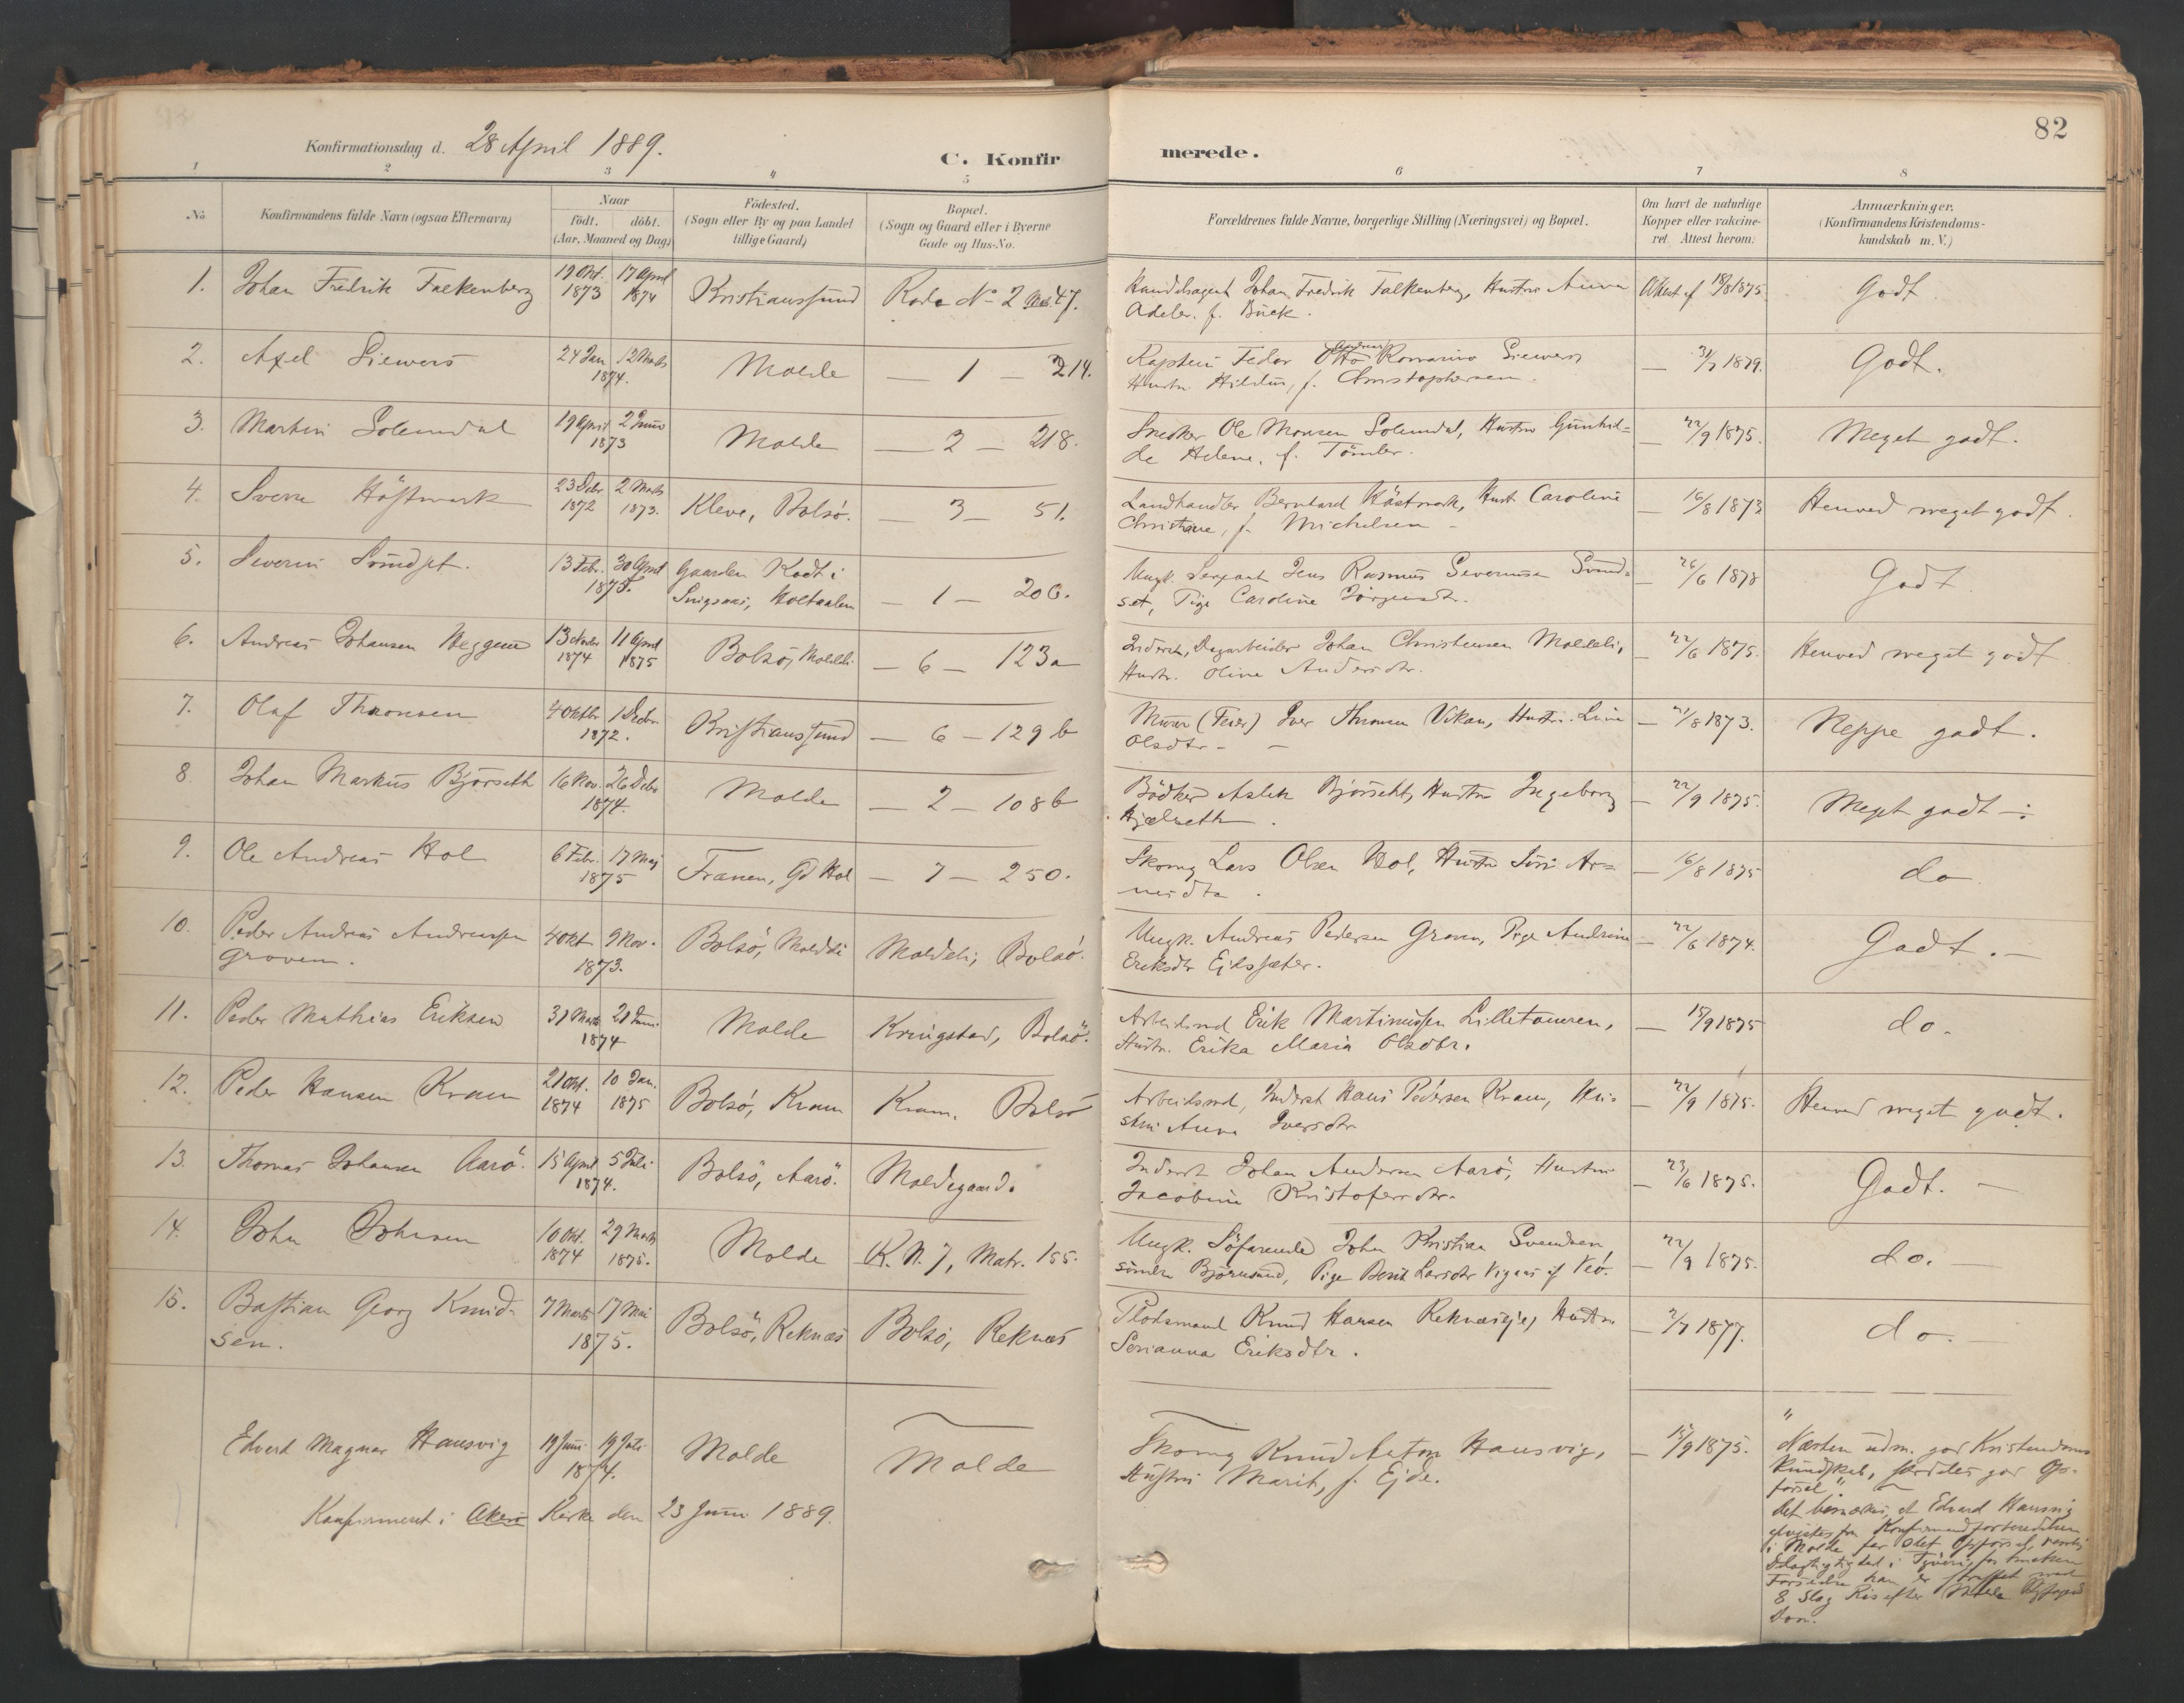 82
Konfirmationsdag d. 28 April 1889.
C. Konfirmerede.
1 2 3 4 5 6 7 8
No
Konfirmandens fulde Navn (ogsaa Efternavn)
Naar
födt. döbt.
(Aar, Maaned og Dag)
Födested.
(Sogn eller By og paa Landet
tillige Gaard)
Bopæl.
(Sogn og Gaard eller i Byerne
Gade og Hus-No.
Forældrenes fulde Navne, borgerlige Stilling (Næringsvei) og Bopæl.
Om havt de naturlige
Kopper eller vakcine-
ret. Attest herom.
Anmærkninger.
(Konfirmandens Kristendoms-
kundskab m. V.)
1. Johan Fredrik Falkenberg 19 Okt. 1873 17 April 1874 Kristianssund Rode No 2 47.
Handelsagent Johan Fredrik Falkenberg, Hustru Anna
Adelr. f. Buck.
Attest af 18/8 1875. Godt
2. Axel Siewers 24 Jan 12 Marts 1874. Molde — 1 — 214.
Kaptein Fedor Otto Andreas Romarino Siewers,
Hustr. Hilda, f. Christophersen.
— 31/7 1879. Godt.
3. Martin Solemdal 19 April 2 Juni 1873 Molde — 2 — 218.
Snedker Ole Monsen Solemdal, Hustru Gunhil=
de Helene, f. Tömler.
— 22/9 1875. Meget godt.
4. Sverre Höstmark 23 Debr 1872 2 Marts 1873. Kleve, Bolsö. — 3 — 51.
Landhandler Bernhard Höstmark, Hust. Caroline
Christiane, f. Michelsen —
— 16/8 1873 Henved meget godt.
5. Severin Svindset. 13 Febr. 30 April 1875. Gaarden Kodt i
Holtaalen — 1 — 206.
Ungk. Sergeant Jens Rasmus Severinsen Svind=
set, Pige Caroline Jörgensdtr.
— 26/6 1878 Godt
6. Andreas Johansen Heggem 13 Novbr 1874 11 April 1875 Bolsö, Moldeli — 6 — 123a
Inderst, Dagarbeider Johan Christensen Moldeli,
Hustr. Oline Andersdtr.
— 22/6 1875. Henved meget godt
7. Olaf Thronsen 4 Oktbr 1 Decbr 1872. Kristianssund — 6 — 129 b
Murer (Feier) Iver Thronsen Vikan, Hustr. Line
Olsdtr — —
— 21/8 1873. Neppe godt.
8. Johan Markus Björseth 16 Nov. 26 Debr 1874. Molde — 2 — 108 b
Bödker Aslek Björseth, Hustru Ingeborg
Hjelseth.
— 22/9 1875. Meget godt —
9. Ole Andreas Hol 6 Febr. 17 Maj 1875 Frænen, Gd Hol — 7 — 250.
Skomg Lars Olsen Hol, Hustr Siri Ar=
nesdtr.
— 16/8 1875 do
10. Peder Andreas Andreassen
Groven. 4 Okt 9 Nov. 1873. Bolsö, Moldeli Moldeli, Bolsö.
Ungk. Andreas Pedersen Groven, Pige Andrine
Eriksdtr Ejdssæter.
— 22/6 1874. Godt. —
11. Peder Mathias Eriksen 31 Marts 21 Juni 1874 Molde Kringstad, Bolsö.
Arbeidsmd Erik Martinussen Lilletoneren,
Hustr. Erika Maria Olsdtr.
— 15/9 1875 do.
12. Peder Hansen Kram 21 Okt. 1874 10 Jan. 1875 Bolsö, Kram Kram, Bolsö
Arbeidsmd, Inderst Hans Pedersen Kram, Hu=
stru Anne Iversdtr
— 22/9 1875. Henved meget godt.
13. Thomas Johansen Aarö. 15 April 5 Juli 1874. Bolsö, Aarö. Moldegaard.
Inderst Johan Andersen Aarö, Hustru
Jacobine Kristofersdtr.
— 23/6 1875. Godt. —
14. John Johnsen 10 Okt. 1874 29 Marts 1875. Molde R. N. 7, Matr. 155.
Ungk. Söfarende John Kristian Svendsen
söndre Björnsund, Pige Berit Larsdtr Vigaas af Veö.
— 22/9 1875. do. —
15. Bastian Georg Knud=
sen. 7 Marts 17 Mai 1875. Bolsö, Reknæs Bolsö, Reknæs
Plodsmand Knud Hansen Reknæseje, Hustru
Serianna Eriksdtr.
— 2/7 1877. do. —
Edvard Magnar Hansvig 19 Juni 19 Juli 1874. Molde Molde
Skomg Knud Anton Hansvig,
Hustru Marit, f. Ejde.
— 15/9 1875.
"Næsten udm. god Kristendoms
kundskab, særdeles god Op=
försel".
Det bemærkes, at Edvard Hansvig
i Molde for slet Opförsel,
Delagtighed i Tyveri,
8 Slag Ris efter Molde
Dom.
Konfirmeret i Akerö Kirke den 23 Juni 1889.